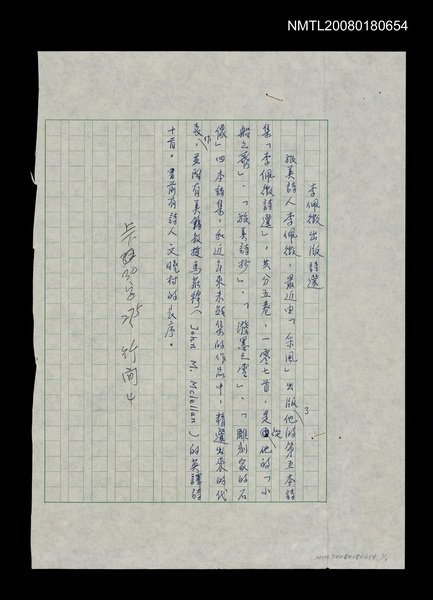 NMTL20080180654
李佩徵出版詩選
旅美詩人李佩徵,最近由「采風」出版他的第五本詩
3
集「李佩徵詩選」,共分五卷,一零七首,是從他的「小
船之歌」、「旅美詩抄」、「潑墨之雲」、「雕刻家的石
像」四本詩集,和近年來未結集的作品中,精選出來的代
表作,並附有美籍教授馬敬穆(John M. Mclellan)的英譯詩
十首。書前有詩人文曉村的長序。
NMTL20080180654 1/1